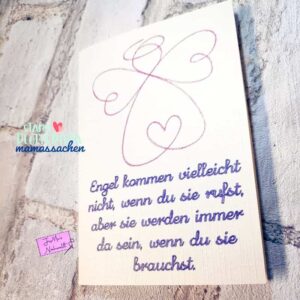 mamassachen
Engel kommen vielleicht
nicht, wenn du sie rufst,
aber sie werden immer
da sein, wenn du sie
brauchst.